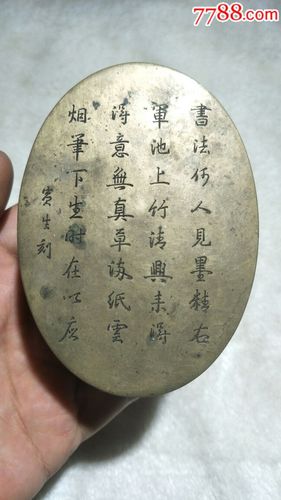 7788.com
書法何人見墨右
軍池上竹清興来得
得意無真草紙雲
烟筆下生時在
寅生刻